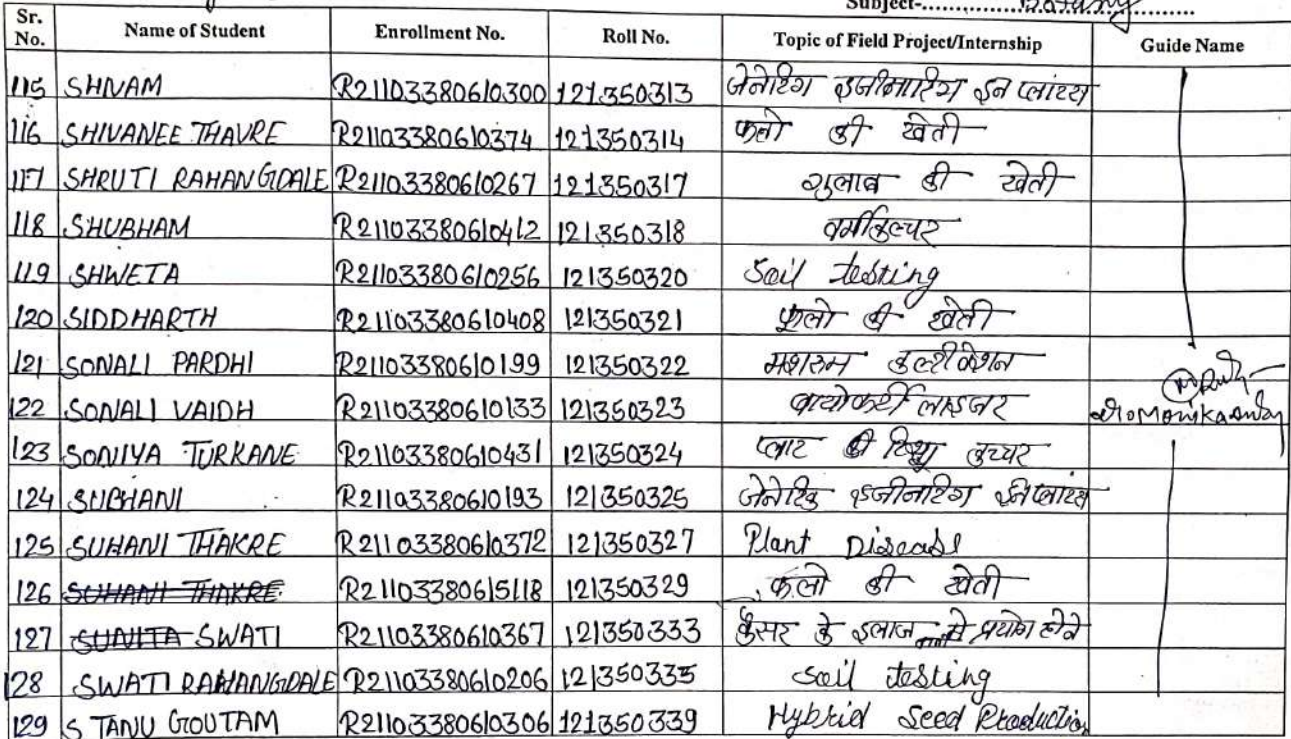 Subject-..............Botany..........
Sr. No. Name of Student Enrollment No. Roll No. Topic of Field Project/Internship Guide Name
115 SHIVAM R21103380610300 121350313 जेनेटिग इजीनारिग इन प्लांटस
116 SHIVANEE THAVRE R21103380610374 121350314 फलो की खेती
117 SHRUTI RAHANGDALE R21103380610267 121350317 गुलाब की खेती
118 SHUBHAM R21103380610412 121350318 वर्मीकल्चर
119 SHWETA R21103380610256 121350320 Soil testing
120 SIDDHARTH R21103380610408 121350321 फूलो की खेती
121 SONALI PARDHI R21103380610199 121350322 मशरुम कल्टीवेशन
122 SONALI VAIDH R21103380610133 121350323 बायोफर्टीलाइजर
123 SONIYA TURKANE R21103380610431 121350324 प्लाट की टिशू कच्चर
124 SUBHANI R21103380610193 121350325 जेनेटिक इजीनीटिग इन प्लांटस
125 SUHANI THAKRE R21103380610372 121350327 Plant Disease
126 SUHANI THAKRE R21103380615118 121350329 फलो की खेती
127 SUNITA SWATI R21103380610367 121350333 कैंसर के इलाज से प्रयोग होने
128 SWATI RAHANGDALE R21103380610206 121350335 soil testing
129 S TANU GOUTAM R21103380610306 121350339 Hybrid Seed Production